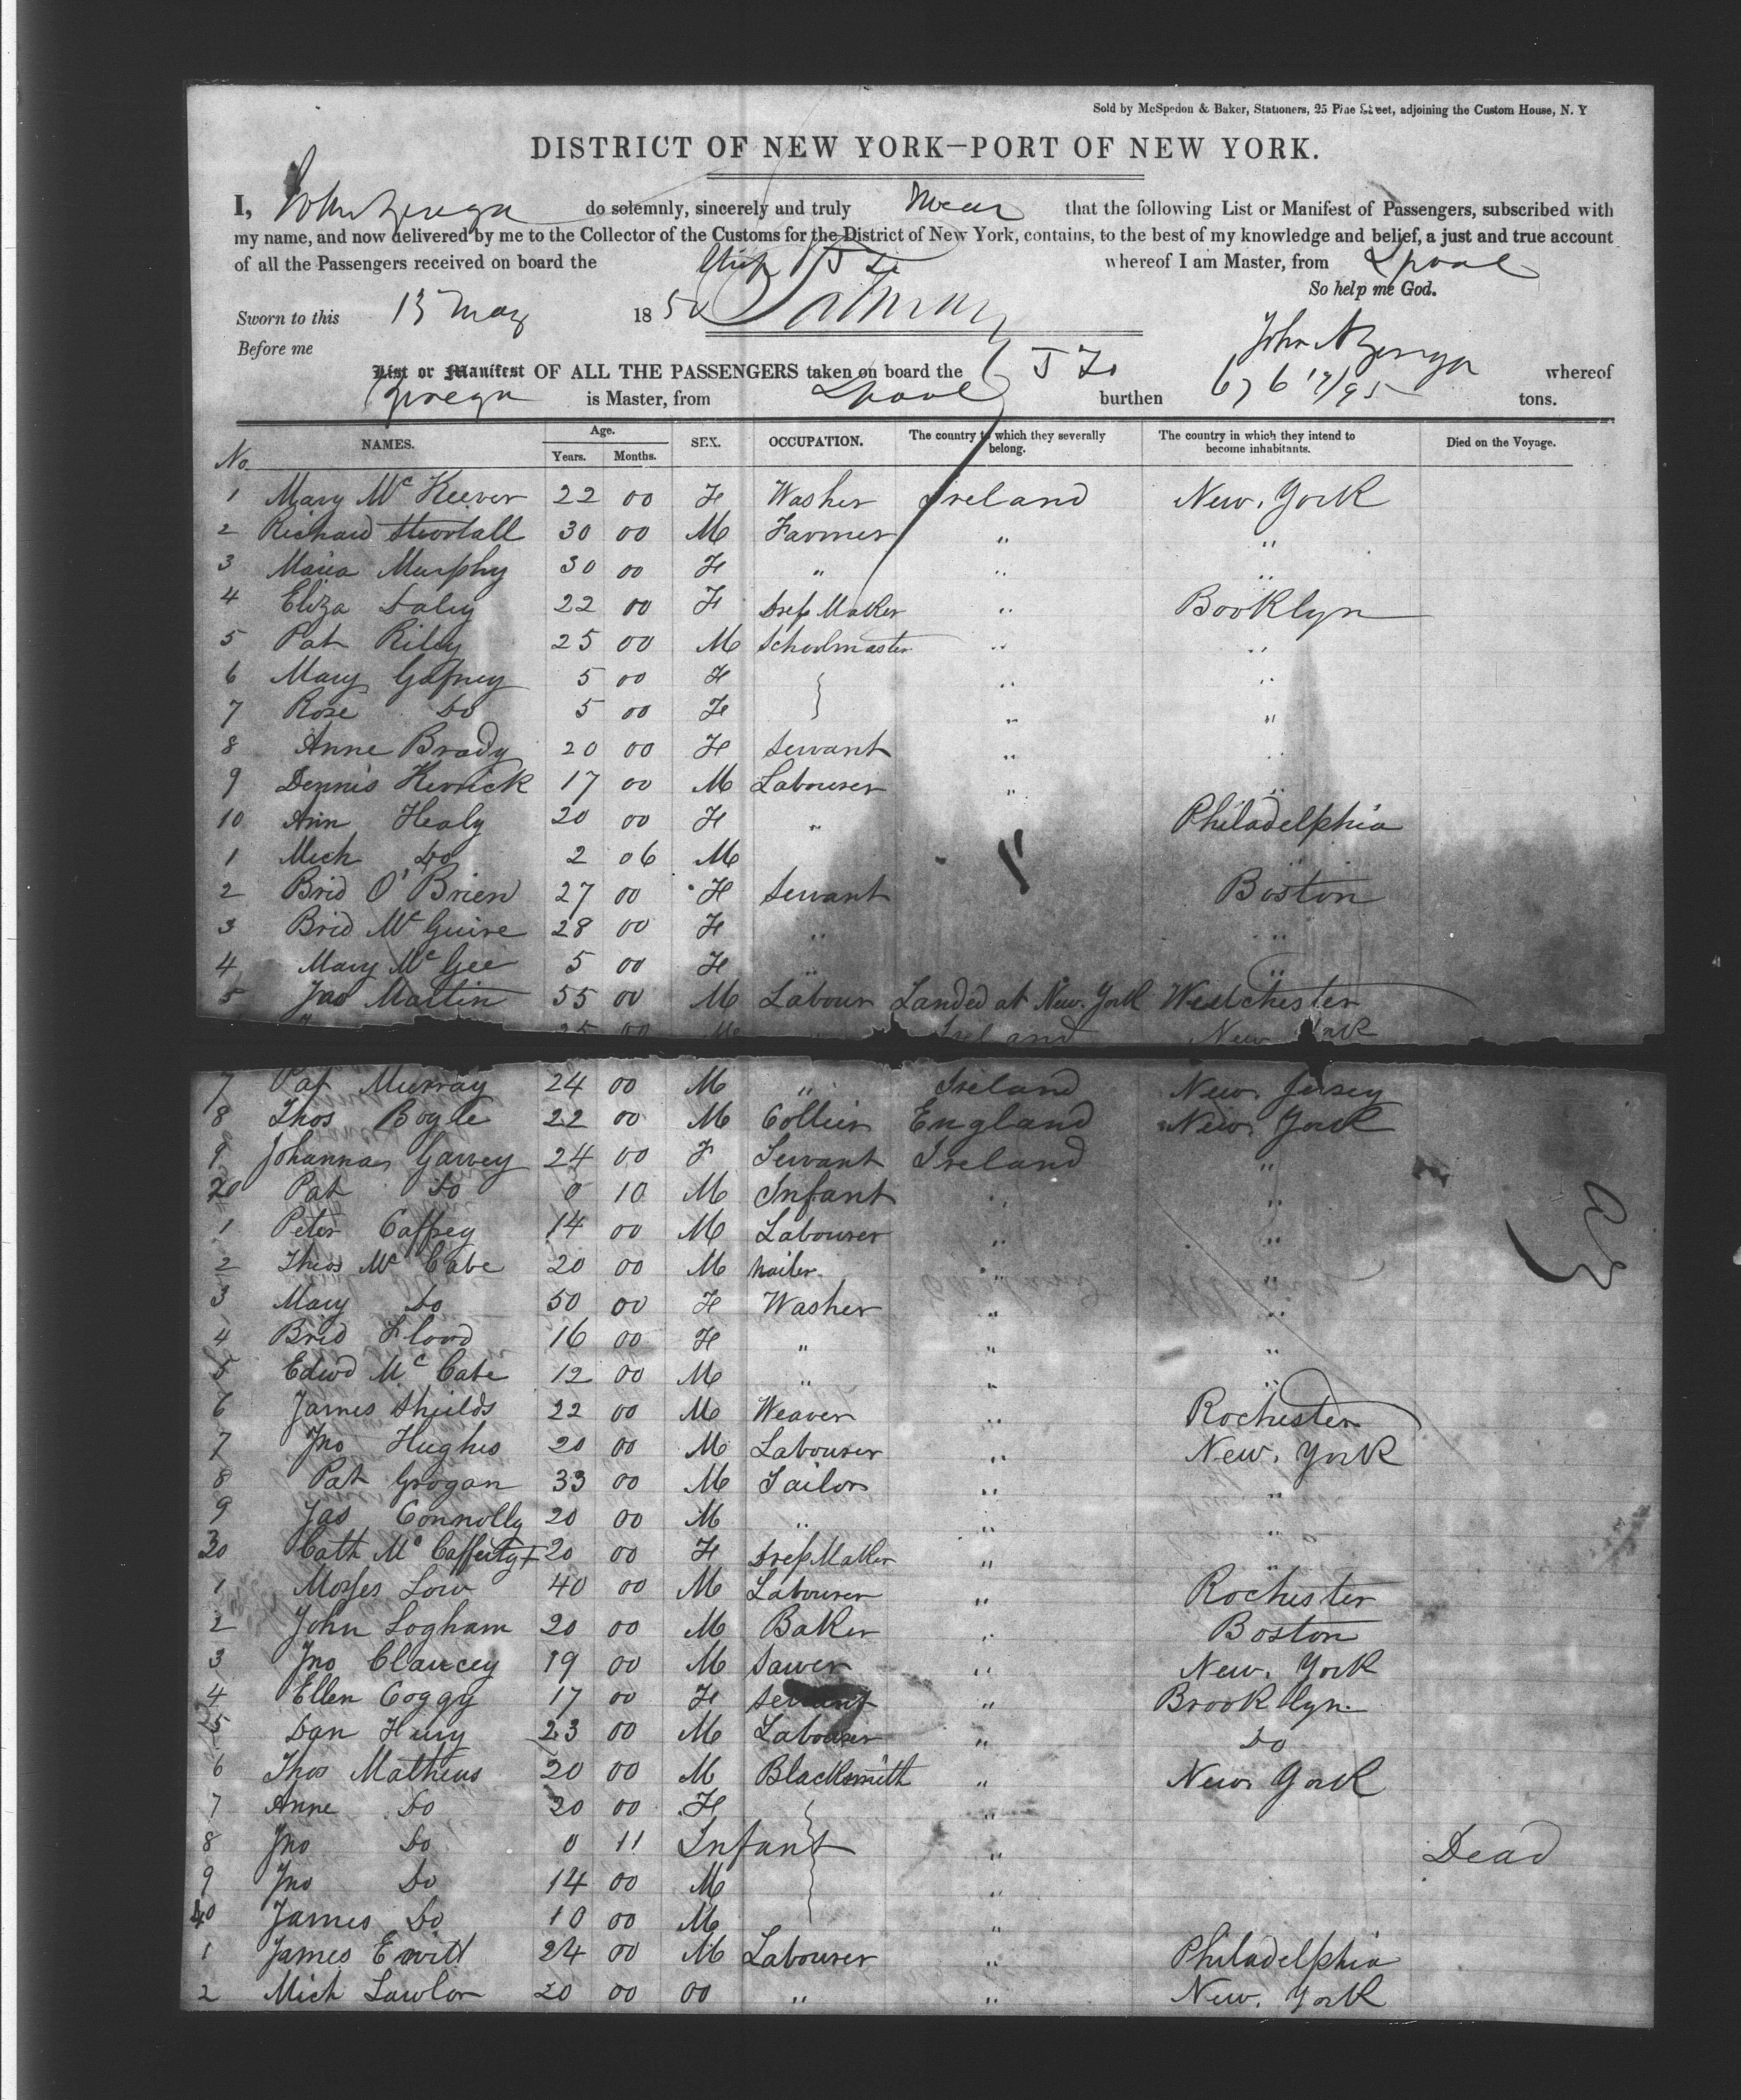 Sold by McSpedon & Baker, Stationers, 25 Pine Street, adjoining the Custom House, N. Y
DISTRICT OF NEW YORK—PORT OF NEW YORK.
I, John Zerega do solemnly, sincerely and truly swear that the following List or Manifest of Passengers, subscribed with
my name, and now delivered by me to the Collector of the Customs for the District of New York, contains, to the best of my knowledge and belief, a just and true account
of all the Passengers received on board the Ship whereof I am Master, from Lpool
So help me God.
Sworn to this 13 May 1850
Before me
John A Zerega
List or Manifest OF ALL THE PASSENGERS taken on board the whereof
Zerega is Master, from Lpool burthen 676 17/95 tons.
No NAMES. Age. Years. Months. SEX. OCCUPATION. The country to which they severally belong. The country in which they intend to become inhabitants. Died on the Voyage.
1 Mary Mc Keever 22 00 F Washer Ireland New. York
2 Richard Shortall 30 00 M Farmer " "
3 Maria Murphy 30 00 F " " "
4 Eliza Daly 22 00 F Dress Maker " Booklyn
5 Pat Riley 25 00 M Schoolmaster " "
6 Mary Gafney 5 00 F " "
7 Rose Do 5 00 F " "
8 Anne Brady 20 00 F Servant " "
9 Dennis Kerrick 17 00 M Labourer " "
10 Ann Healy 20 00 F " Philadelphia
1 Mich Do 2 06 M " "
2 Brid O'Brien 27 00 F Servant Boston
3 Brid Mc Guire 28 00 F " "
4 Mary Mc Gee 5 00 F " "
5 Jas Martin 55 00 M Labour Landed at New. York Westchester
25 00 M Ireland New York
7 Pat Murray 24 00 M " Ireland New. Jersey
8 Thos Bogle 22 00 M Collier England New. York
9 Johanna Garvey 24 00 F Servant Ireland "
20 Pat Do 0 10 M Infant " "
1 Peter Caffrey 14 00 M Labourer " "
2 Thos Mc Cabe 20 00 M Nailer " "
3 Mary Do 50 00 F Washer " "
4 Brid Flood 16 00 F " " "
5 Edwd Mc Cabe 12 00 M " " "
6 James Shields 22 00 M Weaver " Rochester
7 Jno Hughes 20 00 M Labourer " New. York
8 Pat Grogan 33 00 M Tailor " "
9 Jas Connolly 20 00 M " " "
30 Cath Mc Cafferty 20 00 F Dress Maker " "
1 Mosses Low 40 00 M Labourer " Rochester
2 John Logham 20 00 M Baker " Boston
3 Jno Clancey 19 00 M Sawer " New. York
4 Ellen Coggy 17 00 F Servant " Brooklyn.
5 Dan Hury 23 00 M Labourer " Do
6 Thos Mathews 20 00 M Blacksmith " New. York
7 Anne Do 20 00 F "
8 Jno Do 0 11 Infant " Dead
9 Jno Do 14 00 M "
40 James Do 10 00 M "
1 James Ewitt 24 00 M Labourer " Philadelphia
2 Mich Lawlor 20 00 00 " " New. York